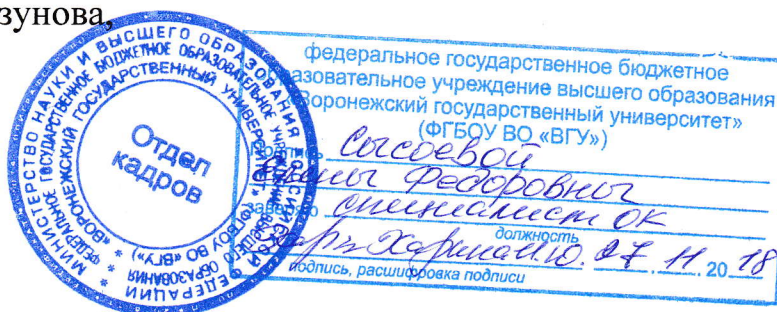 зунова,
МИНИСТЕРСТВО НАУКИ И ВЫСШЕГО ОБРАЗОВАНИЯ РОССИЙСКОЙ ФЕДЕРАЦИИ
ФЕДЕРАЛЬНОЕ ГОСУДАРСТВЕННОЕ БЮДЖЕТНОЕ ОБРАЗОВАТЕЛЬНОЕ УЧРЕЖДЕНИЕ ВЫСШЕГО ОБРАЗОВАНИЯ
«ВОРОНЕЖСКИЙ ГОСУДАРСТВЕННЫЙ УНИВЕРСИТЕТ» (ФГБОУ ВО «ВГУ»)
Отдел
кадров
федеральное государственное бюджетное
образовательное учреждение высшего образования
«Воронежский государственный университет»
(ФГБОУ ВО «ВГУ»)
Подпись Сысоевой
Елены Федоровны
заверяю специалист ОК
должность
Харина И.Ю. 27.11.2018
подпись, расшифровка подписи